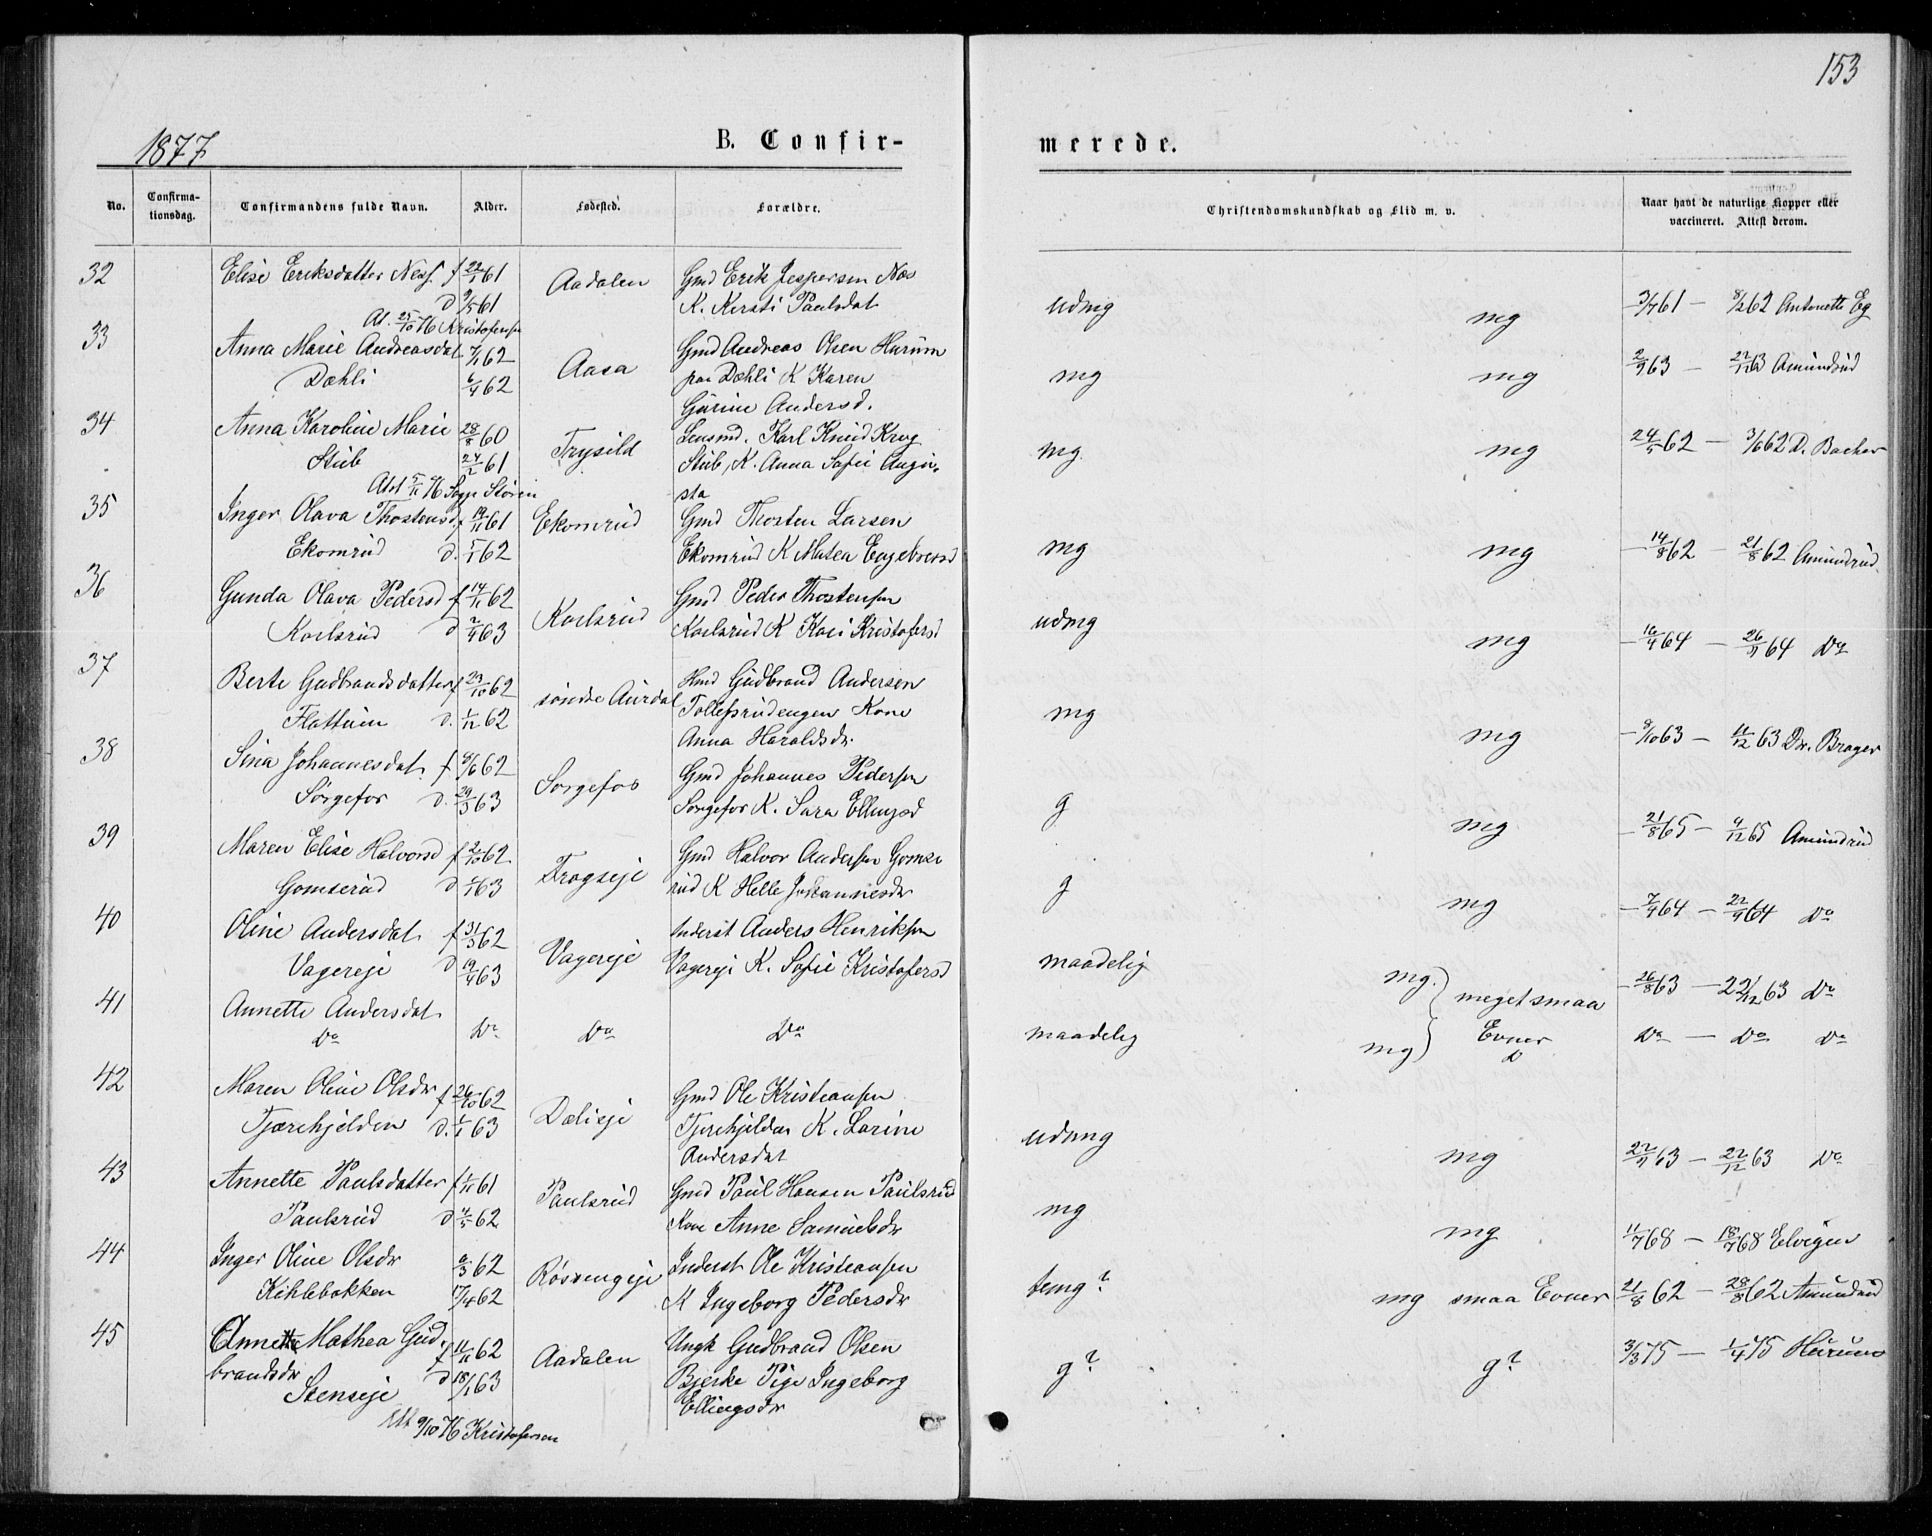 153
1877
B. Confir-
merede.
No.
Confirma-
tionsdag.
Confirmandens fulde Navn.
Alder.
Fødested.
Forældre.
Christendomskundskab og Flid m. v.
Naar havt de naturlige Kopper eller
vaccineret. Attest derom.
32
Elise Eriksdatter Ness f 22/1 61
d 9/5 61
Aadalen
Gmd Erik Jespersen Næs
K. Kersti Paulsdat
udmg
mg
3/7 61 — 8/2 62 Antonette Eg
At. 25/10 76 Kristofersen
33
Anna Marie Andreasdat 7/1 62
Dæhli 6/4 62
Aasa
Gmd Andreas Olsen Hurum
paa Dæhli K Karen
Gurine Andersd.
mg
mg
2/9 63 — 22/12 63 Amundrud
34
Anna Karoline Marie 28/8 60
Stub 24/2 61
Trysild
Lensmd. Karl Knud Krog
Stub, K. Anna Sofie Augu-
sta
mg
mg
24/5 62 — 3/6 62 D. Backer
Att 5/11 76 Sogp Støren
35
Inger Olava Thostensd. f 19/11 61
Ekornrud d. 5/1 62
Ekornrud
Gmd Thosten Larsen
Ekornrud K Matea Engebretsd
mg
mg
14/8 62 — 21/8 62 Amundrud
36
Gunda Olava Pedersd f 14/11 62
Karlsrud d 2/4 63
Karlsrud
Gmd Peder Thostensen
Karlsrud K Kari Kristofersd
udmg
mg
16/9 64 — 26/9 64 Do
37
Berte Gudbrandsdatter f 23/10 62
Flattum d. 1/12 62
søndre Aurdal
Hmd Gudbrand Andersen
Tollefsrudengen Kone
Anna Haraldsdr
mg
mg
9/10 63 — 11/12 63 Dr. Brager
38
Sina Johannesdat. f 8/6 62
Sørgefos d. 29/3 63
Sorgefos
Gmd Johannes Pedersen
Sorgefos K. Sara Ellingsd
g
mg
21/8 65 — 4/12 65 Amundrud
39
Maren Elise Halvorsd f 2/10 62
Gomserud d 1/1 63
Frogseje
Gmd Halvor Andersen Gomse
rud K Helle Johannesdr
g
mg
7/9 64 — 22/9 64 Do
40
Oline Andersdat. f 31/3 62
Vagereje d 19/4 63
Vagereje
Inderst Anders Henriksen
Vagereje K. Sofie Kristofersd
maadelig
mg.
meget smaa
Evner
26/8 63 — 22/12 63 Do
41
Annette Andersdat.
Do
Do
Do
Do
maadelig
mg
Do — Do Do
42
Maren Oline Olsdr f 26/10 62
Tjærehjelden d. 1/1 63
Dælieje
Gmd Ole Kristiansen
Tjærehjelden K. Larine
Andersdat
udmg
mg
22/9 63 — 22/12 63 Do
43
Annette Paulsdatter f 1/11 61
Paulsrud d 4/5 62
Paulsrud
Gmd Paul Hansen Paulsrud
Kone Anne Samuelsdr
mg
mg
11/7 68 — 18/7 68 Elvigen
44
Inger Oline Olsdr 6/3 62
Kihlebakken 17/4 62
Røsvengeje
Inderst Ole Kristiansen
K Ingeborg Pedersdr
temg?
mg smaa Evner
21/8 62 — 28/8 62 Amundrud
45
Annette Mathea Gud-
brandsdr f 11/11 62
Stenseje d 18/1 63
Aadalen
Ungk Gudbrand Olsen
Bjerke Pige Ingeborg
Ellingsdr
g?
g?
3/3 75 — 1/4 75 Hurum
Att 9/10 76 Kristofersen